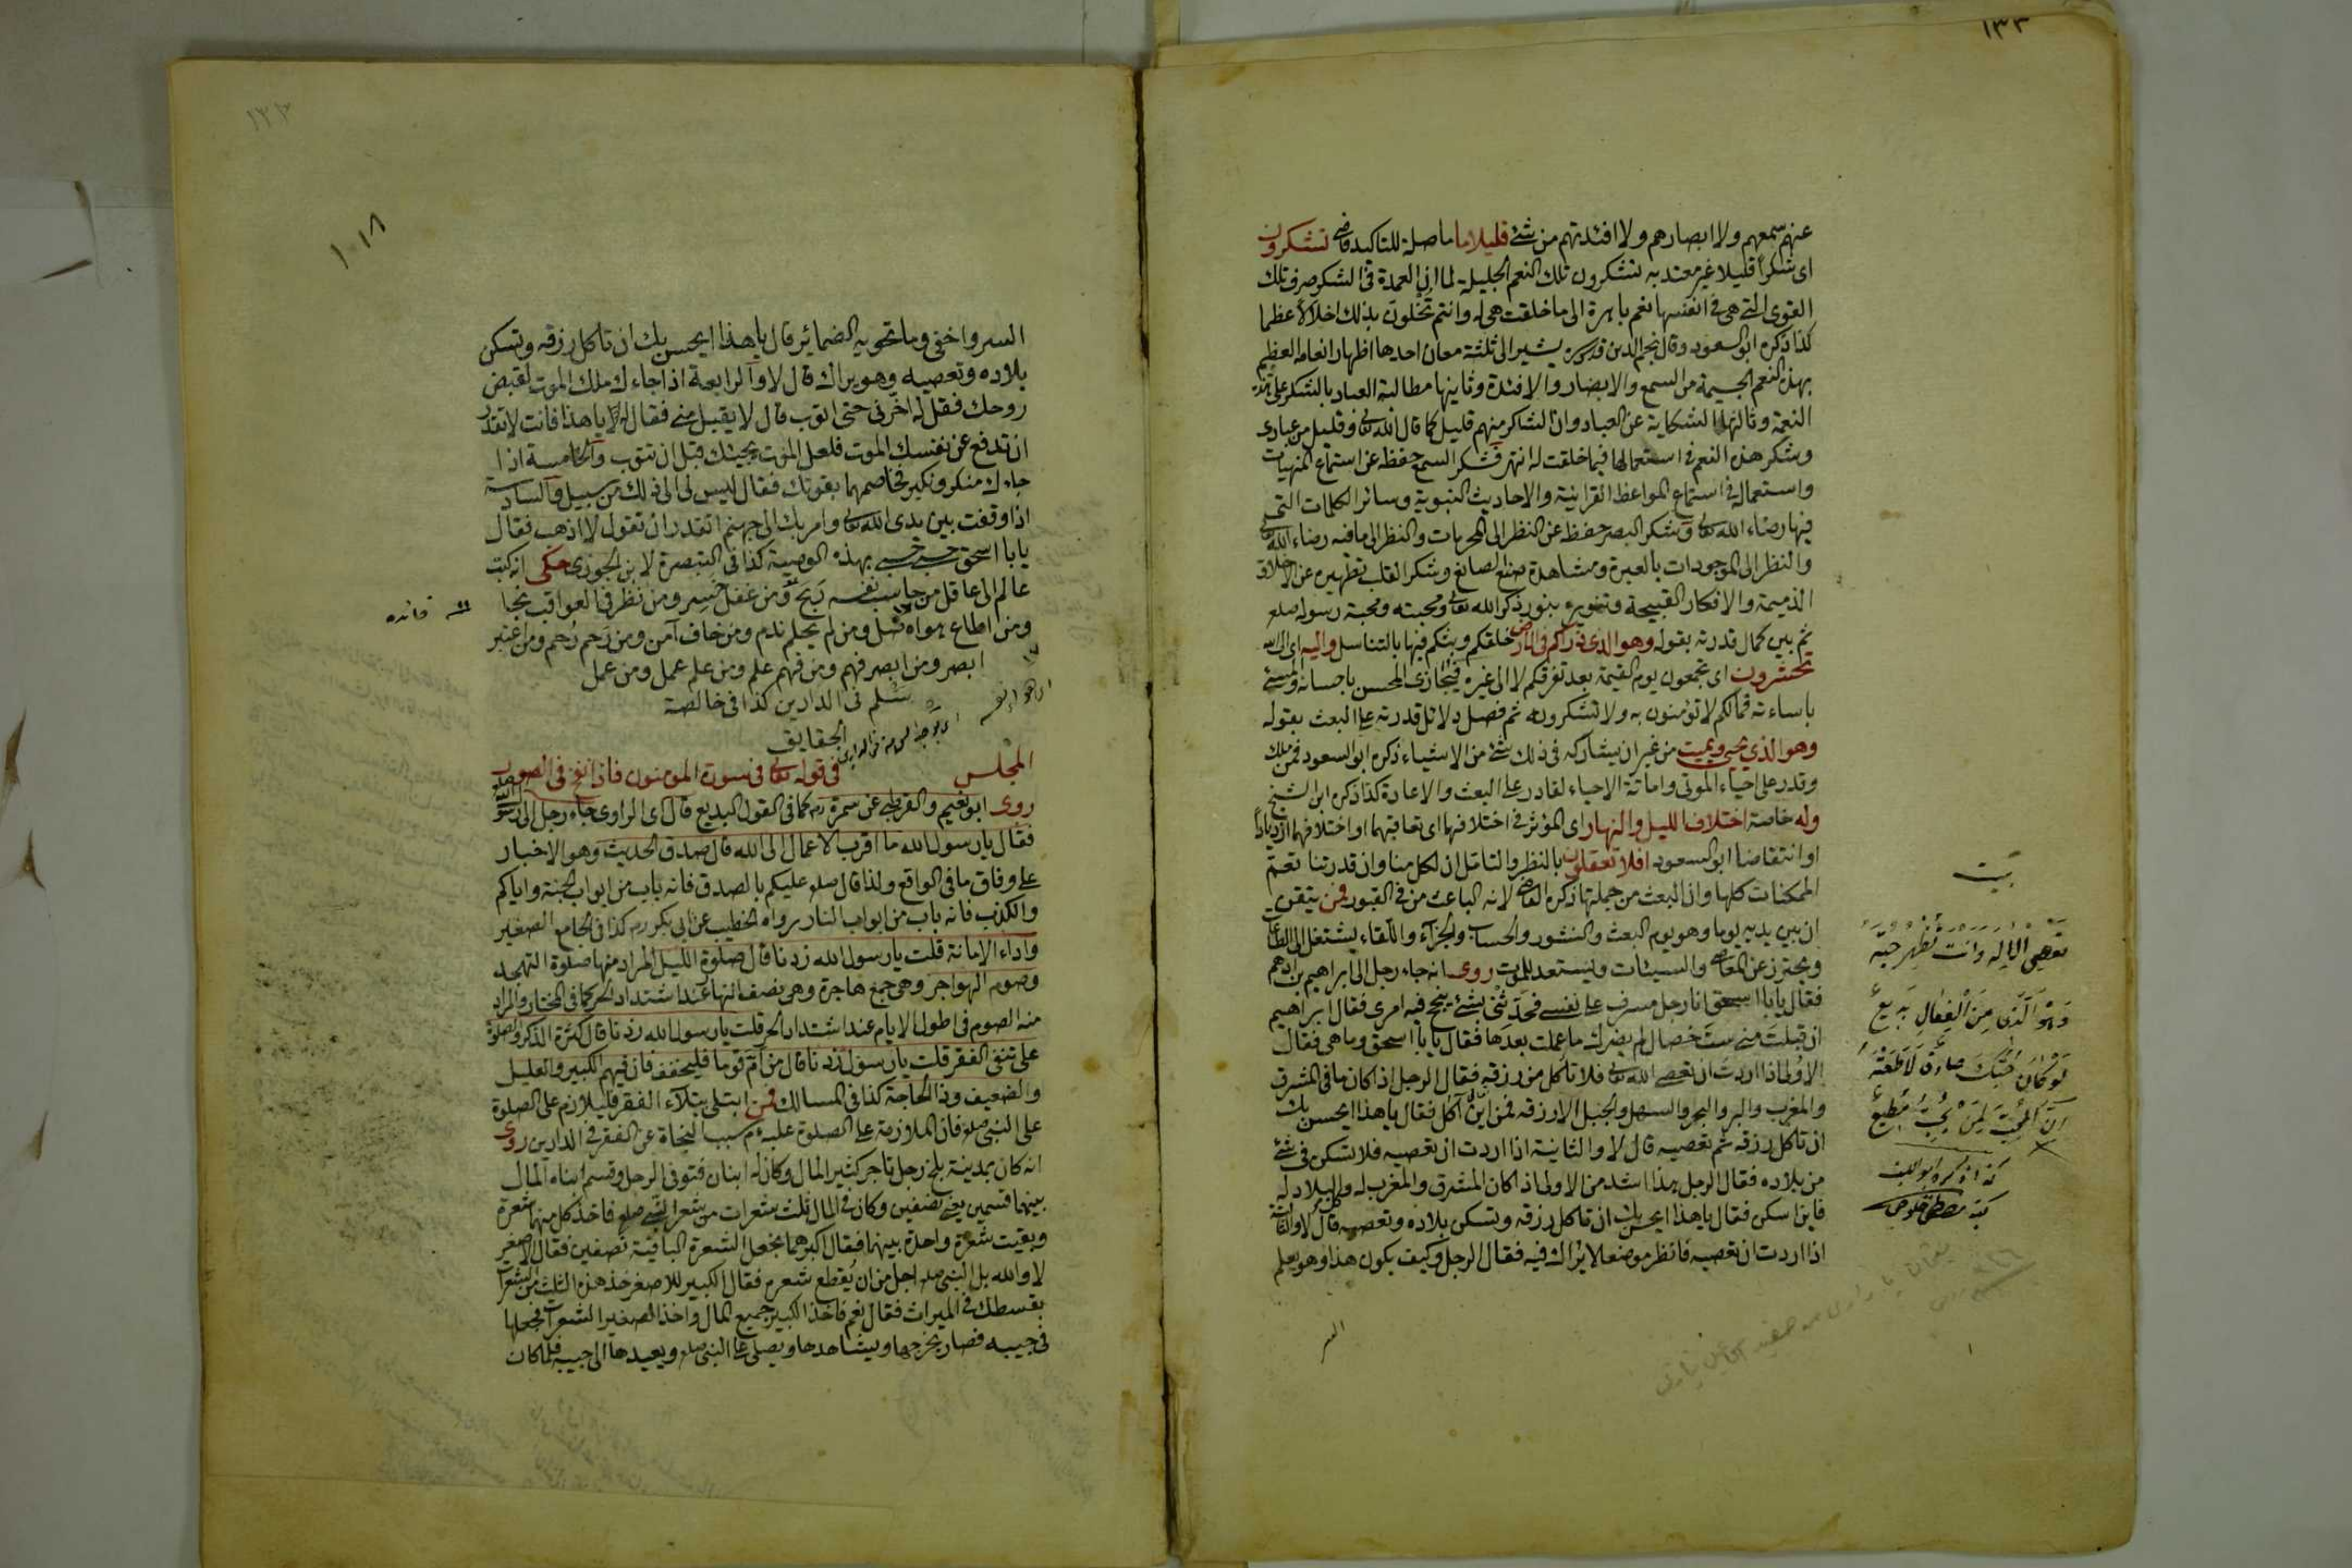 ١٣٣
عنهم سمعهم ولا ابصارهم ولا افئدتهم من شئ قليلا ما ما صلة للتاكيد قاضى تشكرون
اى شكرا قليلا غير معتد به تشكرون تلك النعم الجليلة لما ان العمدة فى الشكر صرف تلك
القوى التى هى فى انفسها نعم باهرة الى ما خلقت هى له وانتم تخلون بذلك اخلالا عظيما
كذا ذكره ابو السعود وقال نجم الدين قدس سره يشير الى ثلثة معان احدها اظهار انعامه العظيم
بهذه النعم الجسيمة من السمع والابصار والافئدة وثانيها مطالبة العباد بالشكر على هذه
النعمة وثالثها الشكاية عن العباد وان الشاكر منهم قليل كما قال الله تعالى وقليل من عبادى
وشكر هذه النعم فى استعمالها فيما خلقت له انتهى فشكر السمع حفظه عن استماع المنهيات
واستعماله فى استماع المواعظ القرانية والاحاديث النبوية وسائر الكلمات التى
فيها رضاء الله تعالى وشكر البصر حفظه عن النظر الى المحرمات والنظر الى ما فيه رضاء الله تعالى
والنظر الى الموجودات بالعبرة ومشاهدة صنع الصانع وشكر القلب تطهيره عن الاخلاق
الذميمة والافكار القبيحة وتنويره بنور ذكر الله تعالى ومحبته ومحبة رسوله صلعم
ثم بين كمال قدرته بقوله وهو الذى ذراكم فى الارض خلقكم وبثكم فيها بالتناسل واليه اى الى الله
تحشرون اى تجمعون يوم القيمة بعد تفرقكم لا الى غيره فيجازى المحسن باحسانه والمسئ
باساءته فمالكم لا تؤمنون به ولا تشكرونه ثم فصل دلائل قدرته على البعث بقوله
وهو الذي يحيي ويميت من غير ان يشاركه فى ذلك شئ من الاشياء ذكره ابو السعود فمن ملك
وقدر على احياء الموتى واماتة الاحياء لقادر على البعث والاعادة كذا ذكره ابن الشيخ
وله خاصة اختلاف الليل والنهار اى المؤثر فى اختلافهما اى تعاقبهما او اختلافهما ازديادا
او انتقاصا ابو السعود افلا تعقلون بالنظر والتامل ان الكل منا وان قدرتنا تعم
الممكنات كلها وان البعث من جملتها ذكره القاضى لانه الباعث من فى القبور فمن تيقن
ان بين يديه يوما وهو يوم البعث والنشور والحساب والجزاء واللقاء يشتغل الى الطاعات
ويحترز عن المعاصى والسيئات ويستعد للموت روى انه جاء رجل الى ابراهيم بن ادهم
فقال يا با اسحق انا رجل مسرف على نفسى فحدثنى بشئ ينجح فيه امرى فقال ابراهيم
ان قبلت منى ست خصال لم يضرك ما عملت بعدها فقال يا با اسحق وما هى فقال
الاولى اذا اردت ان تعصى الله تعالى فلا تاكل من رزقه فقال الرجل اذا كان ما فى المشرق
والمغرب والبر والبحر والسهل والجبل الا رزقه فمن اين آكل فقال يا هذا ايحسن بك
ان تاكل رزقه ثم تعصيه قال لا والثانية اذا اردت ان تعصيه فلا تسكن فى شئ
من بلاده فقال الرجل هذا اشد من الاولى اذا كان المشرق والمغرب له والبلاد له
فاين اسكن فقال يا هذا ايحسن بك ان تاكل رزقه وتسكن بلاده وتعصيه قال لا والثالثة
اذا اردت ان تعصيه فانظر موضعا لا يراك فيه فقال الرجل وكيف يكون هذا وهو يعلم
السر
بيت
تعصى الاله وانت تظهر حبه
وهو الذى من الفعال بديع
لو كان حبك صادقا لاطعته
ان المحب لمن يحب مطيع
كذا ذكره ابو الليث
كتبه مصطفى خلوصى
١٣٣
١٠١٨
السر واخفى وما تحويه الضمائر قال يا هذا ايحسن بك ان تاكل رزقه وتسكن
بلاده وتعصيه وهو يراك قال لا والرابعة اذا جاءك ملك الموت لقبض
روحك فقل له اخرنى حتى اتوب قال لا يقبل منى فقال له لا يا هذا فانت لا تقدر
ان تدفع عن نفسك الموت فلعل الموت يجيئك قبل ان تتوب والخامسة اذا
جاءك منكر ونكير فخاصمهما بقوتك فقال ليس لى الى ذلك من سبيل والسادسة
اذا وقفت بين يدى الله تعالى وامر بك الى جهنم اتقدر ان تقول لا اذهب فقال
يا با اسحق حسبى حسبى بهذه الوصية كذا فى التبصرة لابن الجوزى حكى انه كتب
عالم الى عاقل من حاسب نفسه ربح ومن غفل خسر ومن نظر فى العواقب نجا
ومن اطاع هواه ضل ومن لم يحلم ندم ومن خاف آمن ومن رحم رحم ومن اعتبر
ابصر ومن ابصر فهم ومن فهم علم ومن علم عمل ومن عمل
سلم فى الدارين كذا فى خالصة
الحقايق
فائده
المجلس فى قوله تعالى فى سورة المومنون فاذا نفخ فى الصور
روى ابو نعيم والقرطبى عن سمرة رض كما فى القول البديع قال اى الراوى جاء رجل الى رسول الله
فقال يا رسول الله ما اقرب الاعمال الى الله قال صدق الحديث وهو الاخبار
على وفاق ما فى الواقع ولذا قال صلعم عليكم بالصدق فانه باب من ابواب الجنة واياكم
والكذب فانه باب من ابواب النار رواه الخطيب عن ابى بكر رض كذا فى الجامع الصغير
واداء الامانة قلت يا رسول الله زدنا قال صلوة الليل المراد منها صلوة التهجد
وصوم الهواجر وهى جمع هاجرة وهى نصف النهار عند اشتداد الحر كما فى المختار والمراد
منه الصوم فى اطول الايام عند اشتداد الحر قلت يا رسول الله زدنا قال كثرة الذكر والصلوة
على تنفى الفقر قلت يا رسول زدنا قال من ام قوما فليخفف فان فيهم الكبير والعليل
والضعيف وذا الحاجة كذا فى المسالك فمن ابتلى ببلاء الفقر فليلازم على الصلوة
على النبى صلعم فان الملازمة على الصلوة عليه سبب النجاة عن الفقر فى الدارين روى
انه كان بمدينة بلخ رجل تاجر كثير المال وكان له ابنان فتوفى الرجل وقسم ابناه المال
بينهما قسمين يعنى نصفين وكان فى المال ثلث شعرات من شعر النبى صلعم فاخذ كل منهما شعرة
وبقيت شعرة واحدة بينهما فقال اكبرهما نجعل الشعرة الباقية نصفين فقال الاصغر
لا والله بل النبى صلعم اجل من ان يقطع شعره فقال الكبير للاصغر خذ هذه الثلث من الشعرات
بقسطك فى الميراث فقال نعم فاخذ الكبير جميع المال واخذ الصغير الشعرات فجعلها
فى جيبه فصار يخرجها ويشاهدها ويصلى على النبى صلعم ويعيدها الى جيبه فلما كان